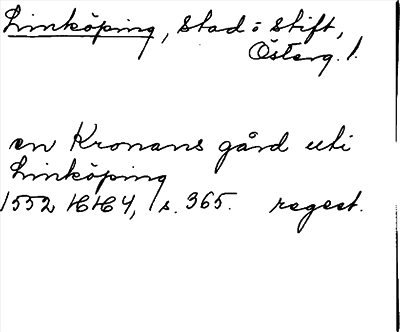 Linköping, stad o stift,
Österg. l.
en Kronans gård uti
Linköping
1552 16/4, s. 365. regest.